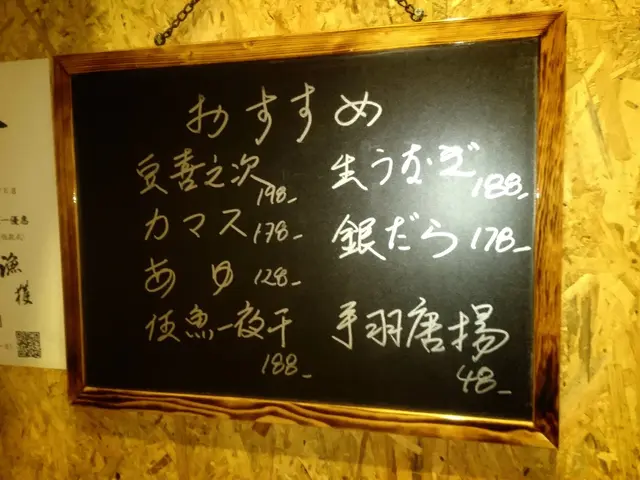 おすすめ
豆喜之次 198-
カマス 178-
あゆ 128-
一夜干
188-
生うなぎ 188-
銀だら 178-
手羽唐揚
48-
一優惠
漁
獲